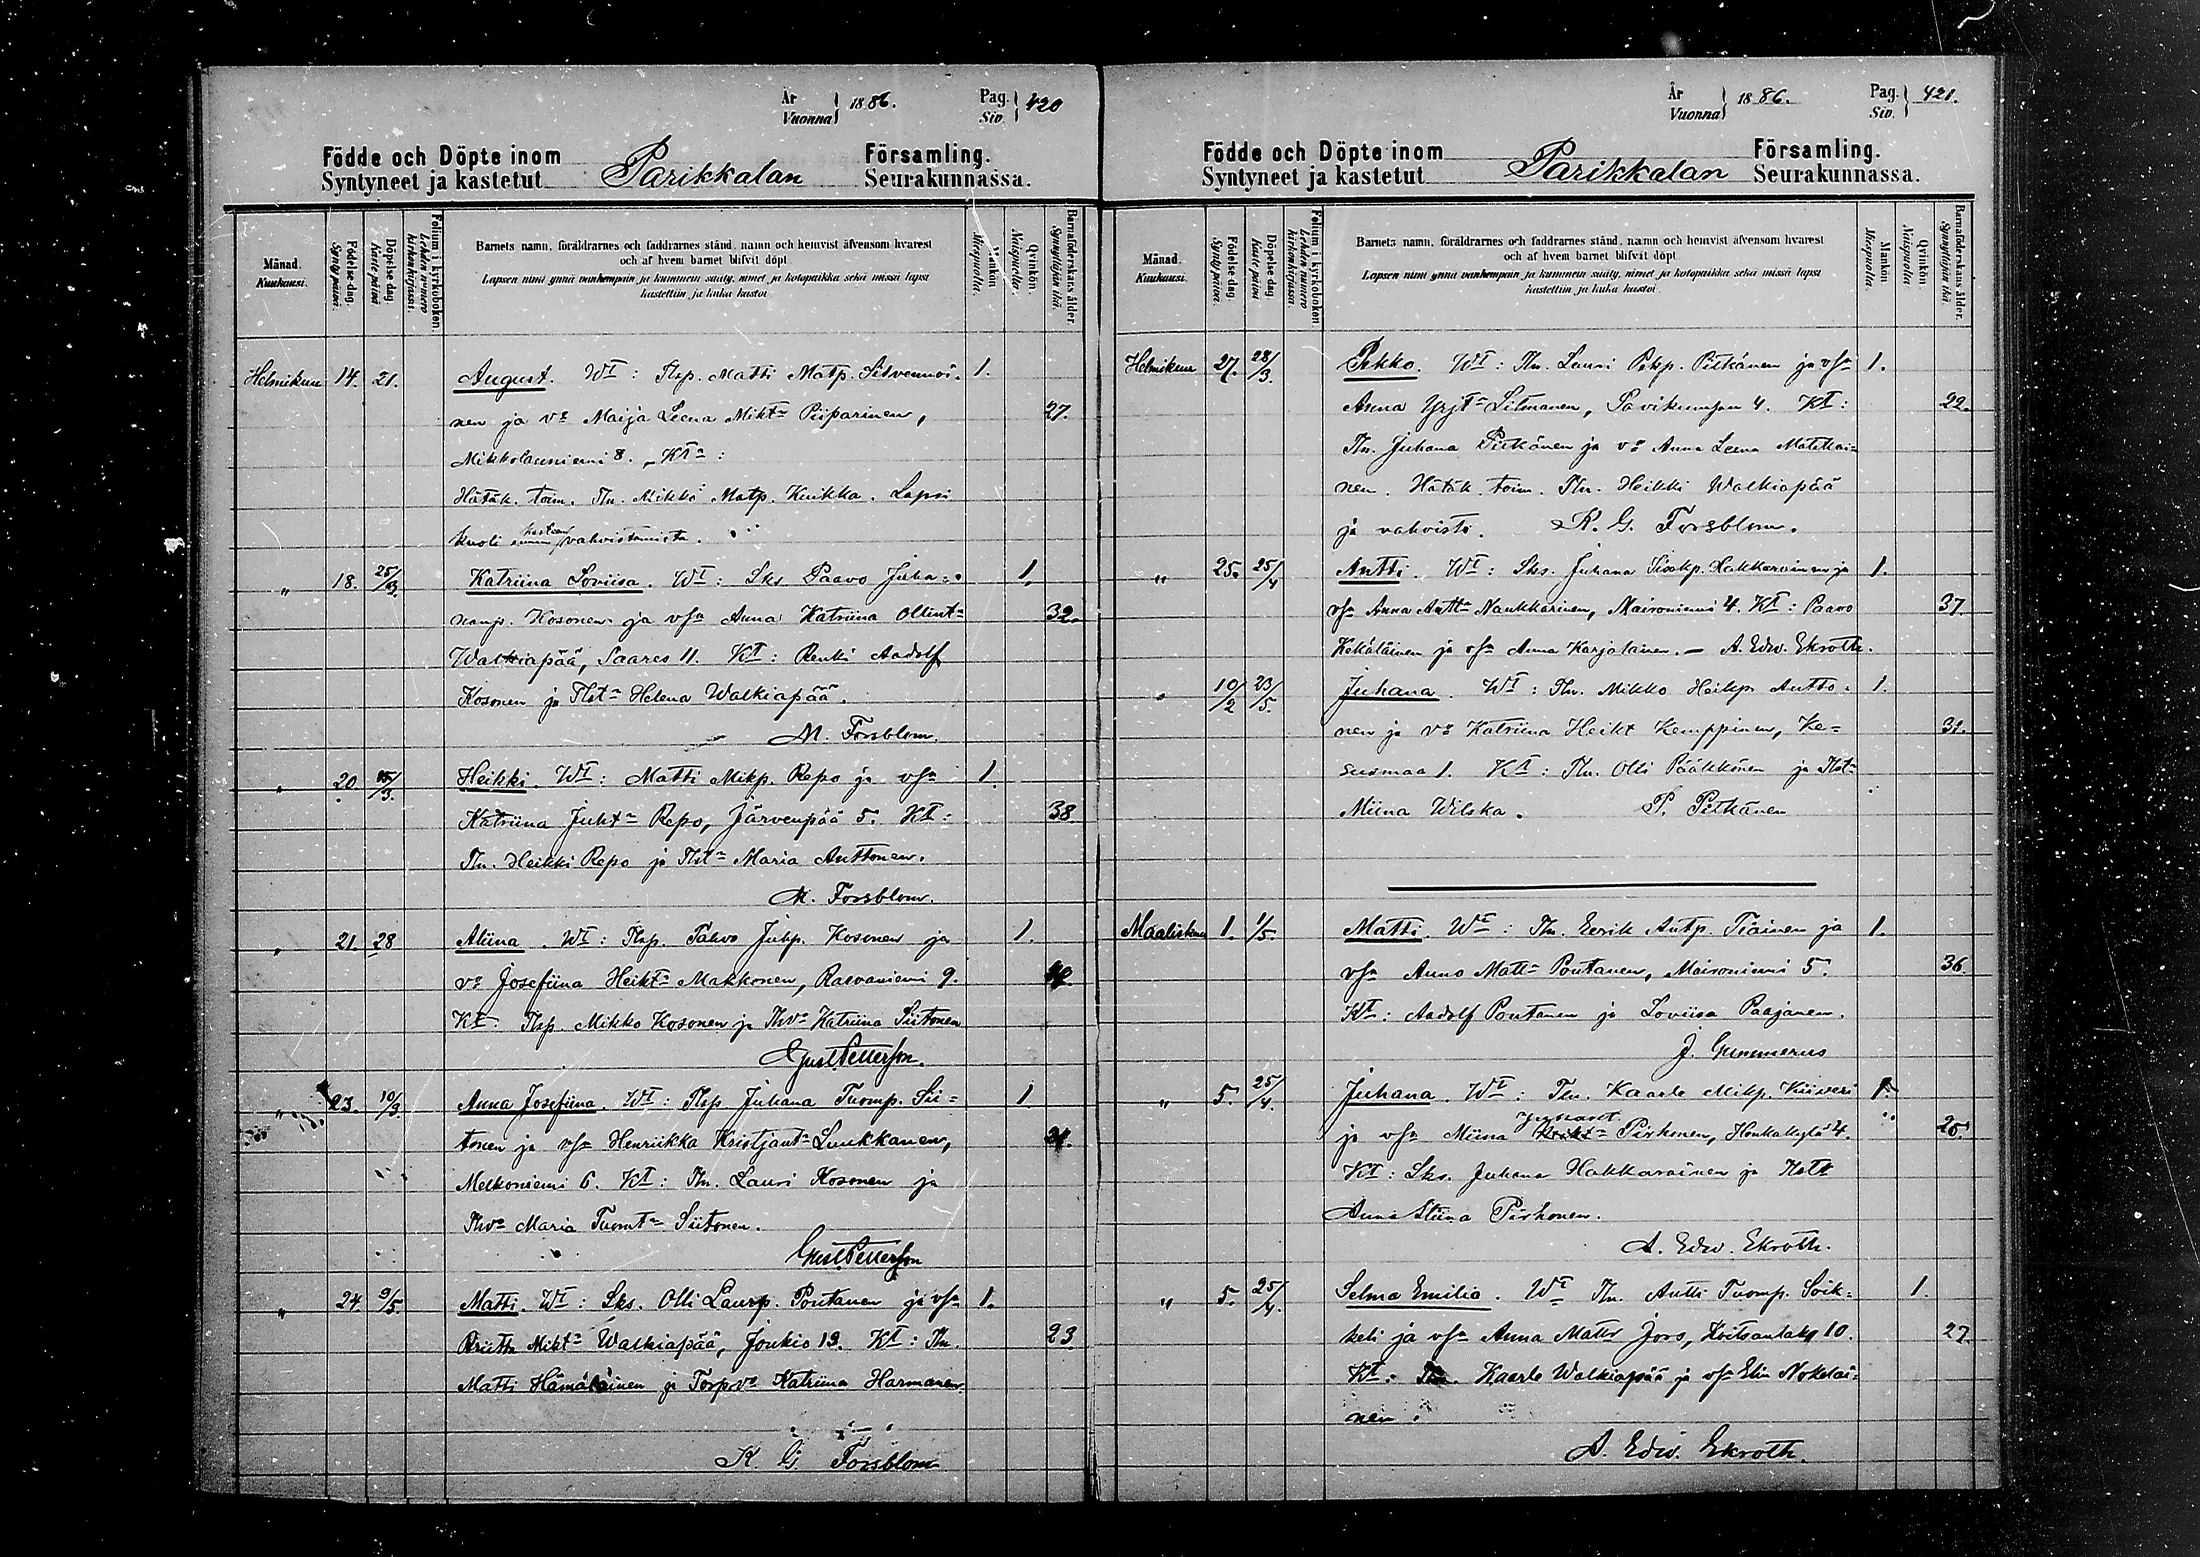 År
Vuonna } 1886.
Pag.
Siv. } 420
Födde och Döpte inom Parikkalan Församling.
Syntyneet ja kastetut Seurakunnassa.
Månad.
Kuukausi.
Födelse-dag.
Syntypäivä.
Döpelse-dag.
Kastepäivä
Folium i kyrkoboken.
Lehden numero kirkonkirjassa.
Barnets namn, föräldrarnes och faddrarnes stånd, namn och hemvist äfvensom hvarest
och af hvem barnet blifvit döpt
Lapsen nimi ynnä vanhempain ja kummein sääty, nimet ja kotopaikka sekä missä lapsi
kastettiin ja kuka kastoi
Mankön
Miespuolta.
Qvinkön
Naispuolta.
Barnaföderskans ålder.
Synnyttäjän ikä.
Helmikuu 14. 21. August. WT: Tlsp. Matti Matp. Silvennoi- 1.
nen ja vo Maija Leena Miktr Piiparinen, 27.
Mikkolanniemi 8. KTa:
Hätäk. toim. Tln. Mikko Matp. Kuikka. Lapsi
kuoli ennen kasteen vahvistamista.
" 18. 25/3. Katriina Loviisa. WT: Sks. Paavo Juha- 1.
nanp. Kosonen ja vsa Anna Katriina Ollint- 32.
Walkiapää, Saares 11. KT: Renki Aadolf
Kosonen ja Tlst- Helena Walkiapää.
M. Forsblom.
" 20. 15/3. Heikki. WT: Matti Mikp. Repo ja vsa 1.
Katriina Juht- Repo, Järvenpää 5. KT: 38.
Tln. Heikki Repo ja Tlst- Maria Anttonen.
M. Forsblom.
" 21. 28 Aliina. WT: Tlsp. Pahvo Juhp. Kosonen ja 1.
vo Josefiina Heikt- Makkonen, Rasvaniemi 9.
KT: Tlsp. Mikko Kosonen ja Tlvo Katriina Siitonen
Gust. Petterson.
" 23. 10/3 Anna Josefiina. WT: Tlsp Juhana Tuomp. Sii- 1
tonen ja vsa Henriikka Kristjant- Luukkanen, 21.
Melkoniemi 6. KT: Tln. Lauri Kosonen ja
Tlvo Maria Tuomt- Siitonen.
Gust. Petterson
" 24. 9/5. Matti. WT: Sks. Olli Laurp. Poutanen ja vsa 1.
Briitta Mikt- Walkiapää, Joukio 19. KT: Tln. 23.
Matti Hämäläinen ja Torp.vo Katriina Harmanen
K. G. Forsblom
År
Vuonna } 1886.
Pag.
Siv. } 421.
Födde och Döpte inom Parikkalan Församling.
Syntyneet ja kastetut Seurakunnassa.
Månad.
Kuukausi.
Födelse-dag.
Syntypäivä.
Döpelse-dag.
Kastepäivä
Folium i kyrkoboken.
Lehden numero kirkonkirjassa.
Barnets namn, föräldrarnes och faddrarnes stånd, namn och hemvist äfvensom hvarest
och af hvem barnet blifvit döpt
Lapsen nimi ynnä vanhempain ja kummein sääty, nimet ja kotopaikka sekä missä lapsi
kastettiin ja kuka kastoi.
Mankön
Miespuolta.
Qvinkön
Naispuolta.
Barnaföderskans ålder.
Synnyttäjän ikä.
Helmikuu 27. 28/3. Pekko. WT: Tln. Lauri Pekp. Pitkänen ja vsa 1.
Anna Yrjt- Litmanen, 4. KT: 22.
Tln. Juhana Pitkänen ja vo Anna Leena Matikai-
nen. Hätäk. toim. Tln. Heikki Walkiapää
ja vahvisti. K. G. Forsblom.
" 25. 25/4 Antti. WT: Sks. Juhana Hakkarainen ja 1.
vsa Anna Antt- Naukkarinen, Maironiemi 4. KT: Paavo 37.
Kekäläinen ja vsa Anna Karjalainen. — A. Edw. Ekroth.
" 10/2 23/5. Juhana. WT: Tln. Mikko Heikp. Antto- 1.
nen ja vo Katriina Heikt Kemppinen, Ke- 31.
susmaa 1. KT: Tln. Olli Pääkkönen ja Tlst-
Miina Wilska. P. Pitkänen
Maaliskuu 1. 1/5. Matti. WT: Tln. Eerik Antp. Tiainen ja 1.
vsa Anna Matt- Poutanen, Maironiemi 5. 36.
KT: Aadolf Poutanen ja Loviisa Paajanen.
J. Gummerus
" 5. 25/4. Juhana. WT: Tln. Kaarle Mikp. Kiiveri 1.
Juhant
ja vsa Miina Heikt- Pirhonen, Honkakylä 4. 25.
KT: Sks. Juhana Hakkarainen ja Tlstt
Anna Stiina Pirhonen.
A. Edw. Ekroth.
" 5. 25/4. Selma Emilia. WT Tln. Antti Tuomp. Soik- 1.
keli ja vsa Anna Matts Jors, Koitsanlaks 10. 27
KT: Tln. Kaarle Walkiapää ja vsa Elin Nokelai-
nen.
A. Edw. Ekroth.